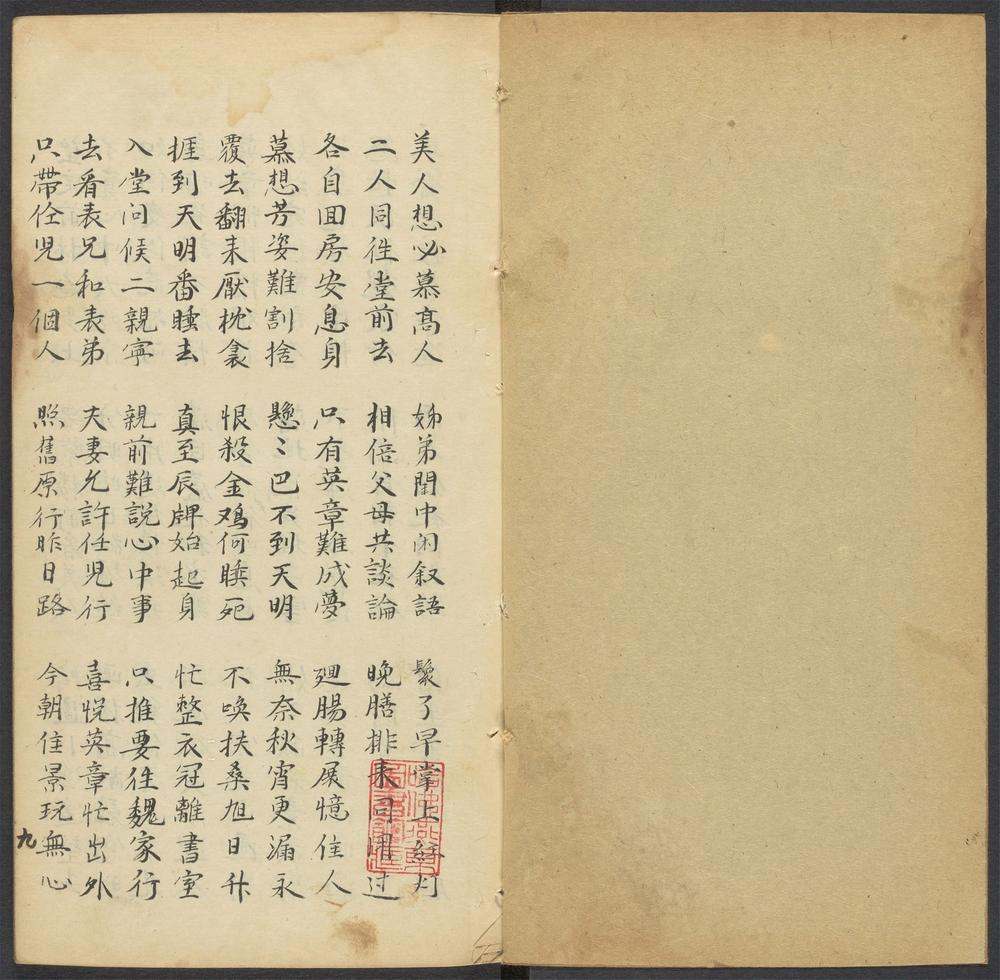 美人想必慕高人 姊弟閨中闲叙語 鬟了早掌上紅灯
二人同徃堂前去 相倍父母共談論 晚膳排来同
各自囬房安息身 只有英章難成夢 廻腸轉展憶佳人
慕想芳姿難割捨 戀〻巴不到天明 無奈秋宵更漏永
覆去翻来厭枕衾 恨殺金鸡何睡死 不唤扶桑旭日升
捱到天明番睡去 真至辰牌始起身 忙整衣冠離書室
入堂问候二親寧 親前難説心中事 只推要徃魏家行
去看表兄和表弟 夫妻允許任児行 喜悦英章忙出外
只帶佺児一個人 照舊原行昨日路 今朝佳景玩無心
九